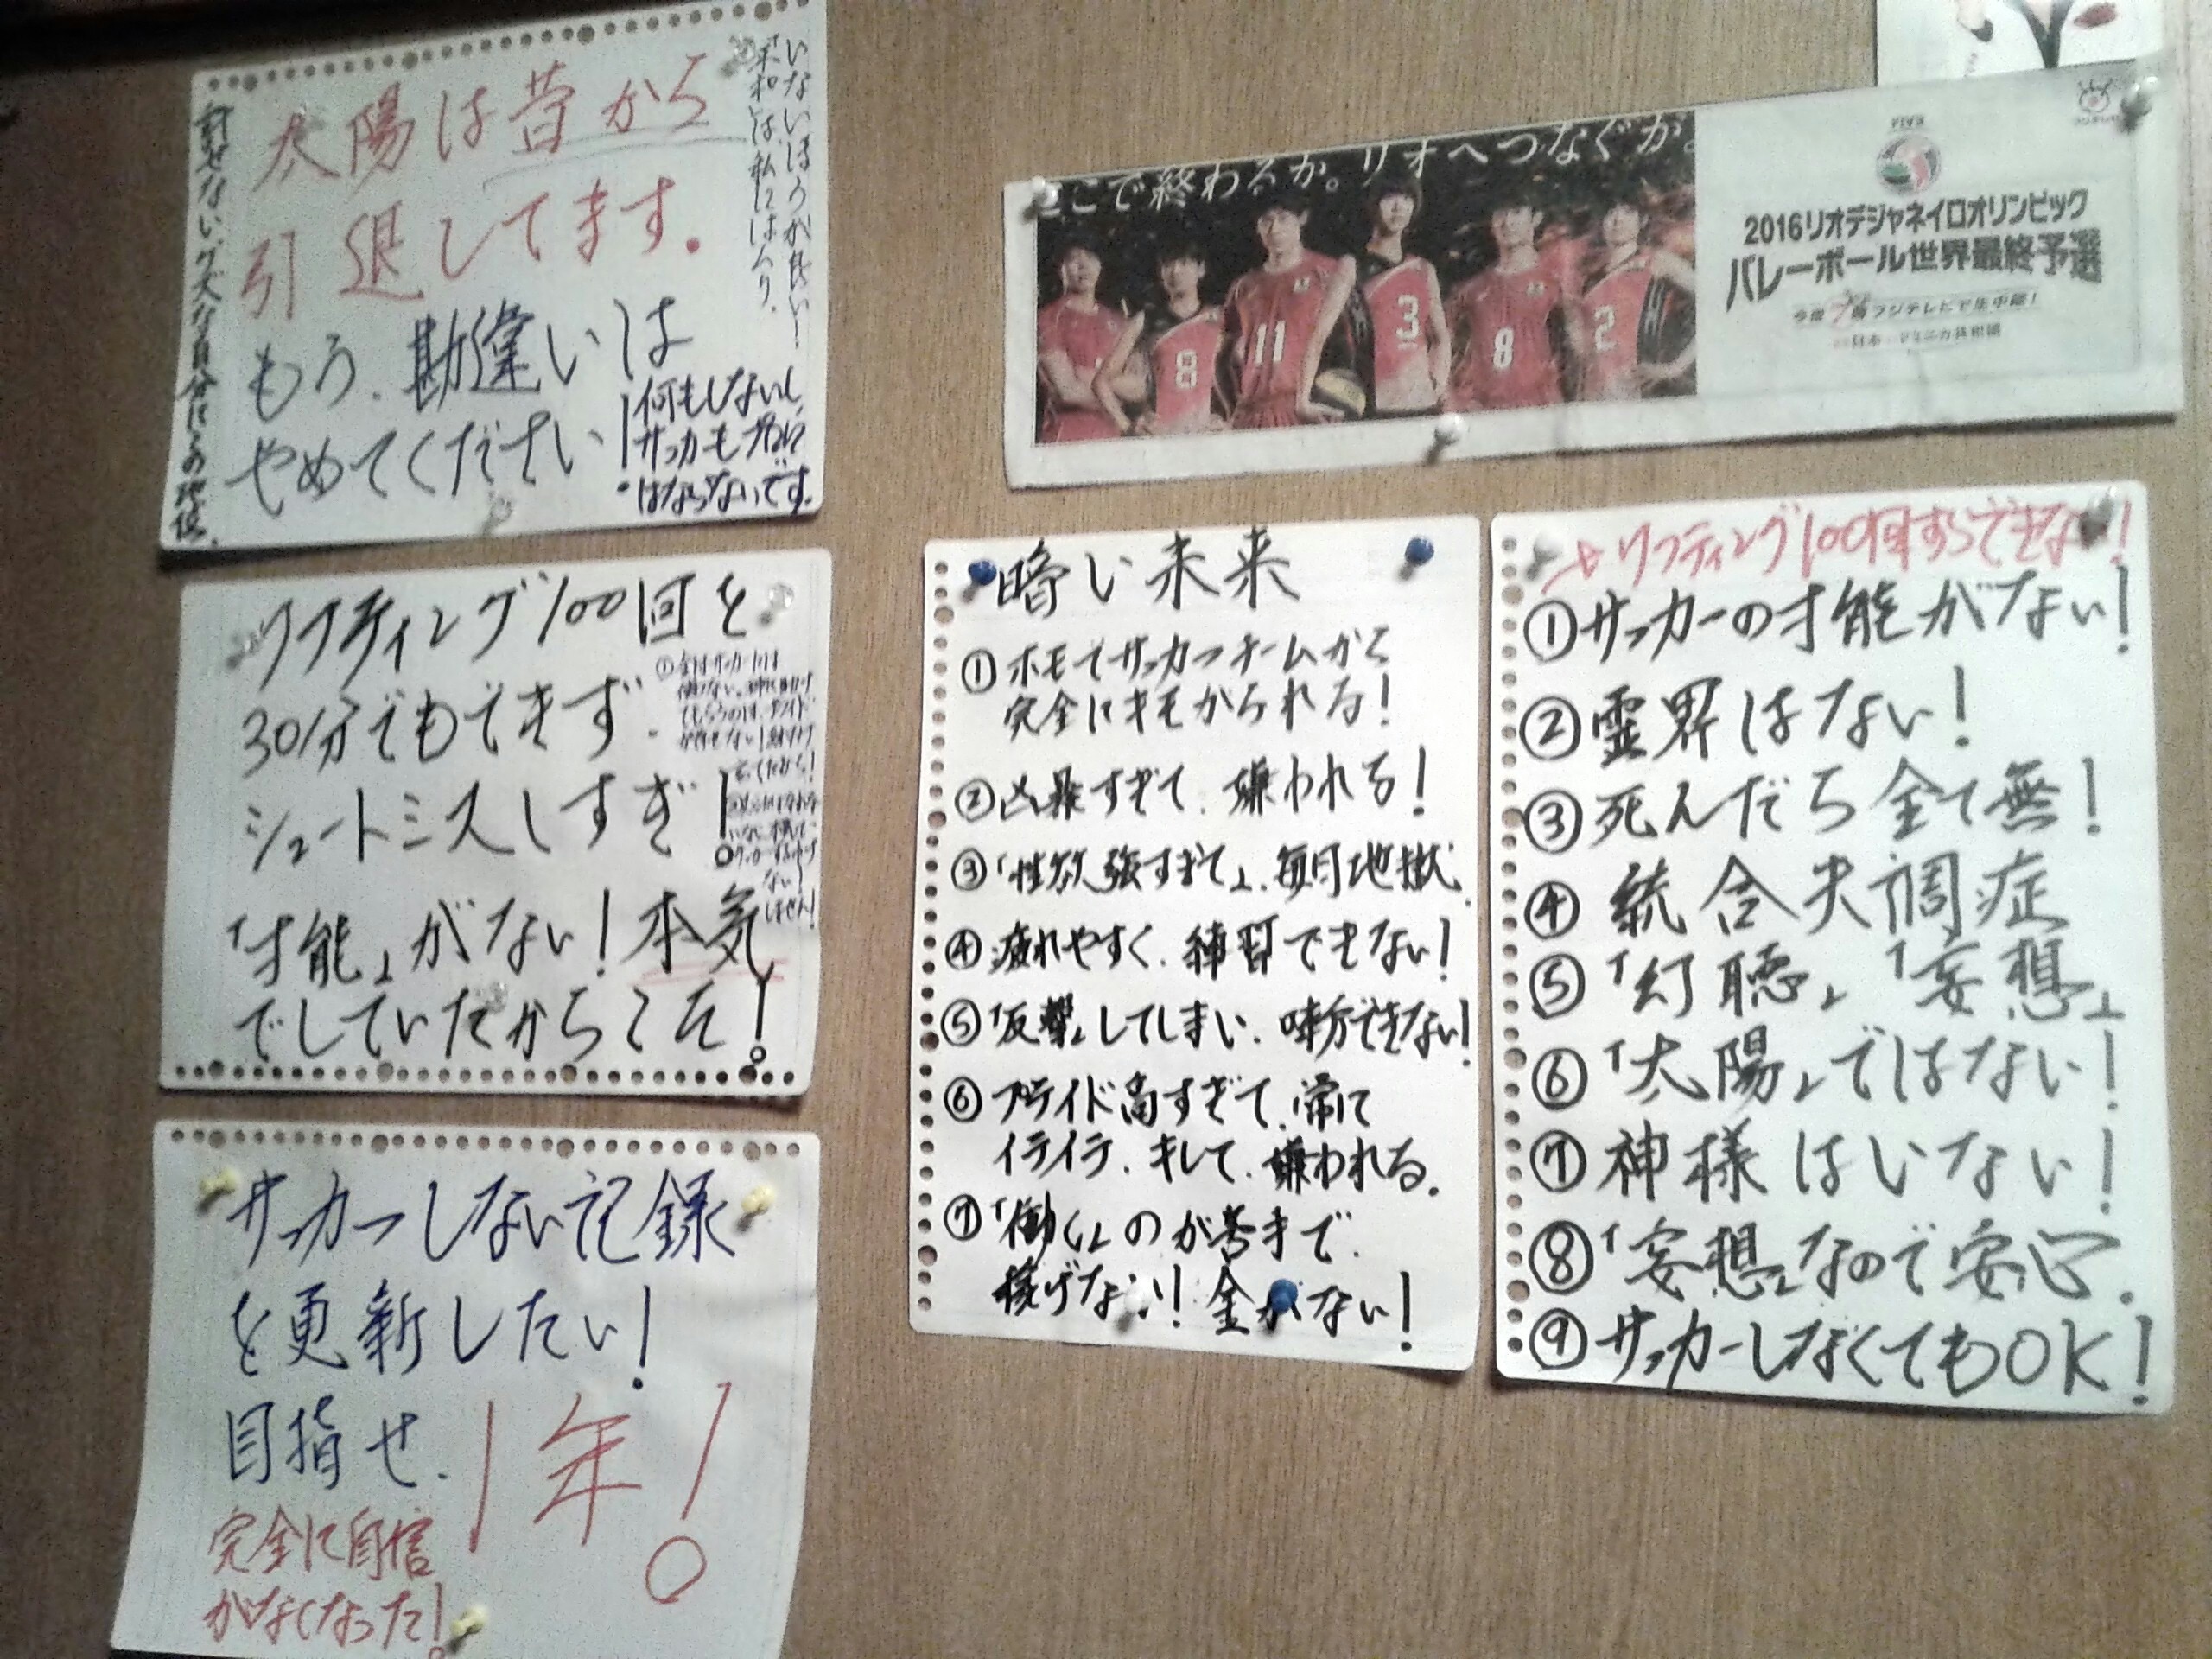 太陽は昔から
引退してます。
もう、勘違いは
やめてください!
何もしないし、
サッカーも
はならないです。
いないほうが良い!
私にはムリ。
リフティング100回を
30分でもできず、
シュートミスしすぎ!
「才能」がない!本気
でしていたからこそ!
サッカーしない記録
を更新したい!
目指せ、1年!
完全に自信
がなくなった!
ここで終わるか。リオへつなぐか。
8
11
3
8
2
2016リオデジャネイロオリンピック
バレーボール世界最終予選
今夜7時フジテレビで生中継!
暗い未来
①ホモでサッカーチームから
完全にキモがられる!
②凶暴すぎて、嫌われる!
③「性欲強すぎて」、毎日地獄。
④疲れやすく、練習できない!
⑤「反撃」してしまい、味方できない!
⑥プライド高すぎて、常に
イライラ、キレて、嫌われる。
⑦「働く」のが苦手で、
稼げない!金がない!
リフティング100回すらできない!
①サッカーの才能がない!
②霊界はない!
③死んだら全て無!
④統合失調症
⑤「幻聴」「妄想」
⑥「太陽」ではない!
⑦神様はいない!
⑧「妄想」なので安心。
⑨サッカーしなくてもOK!